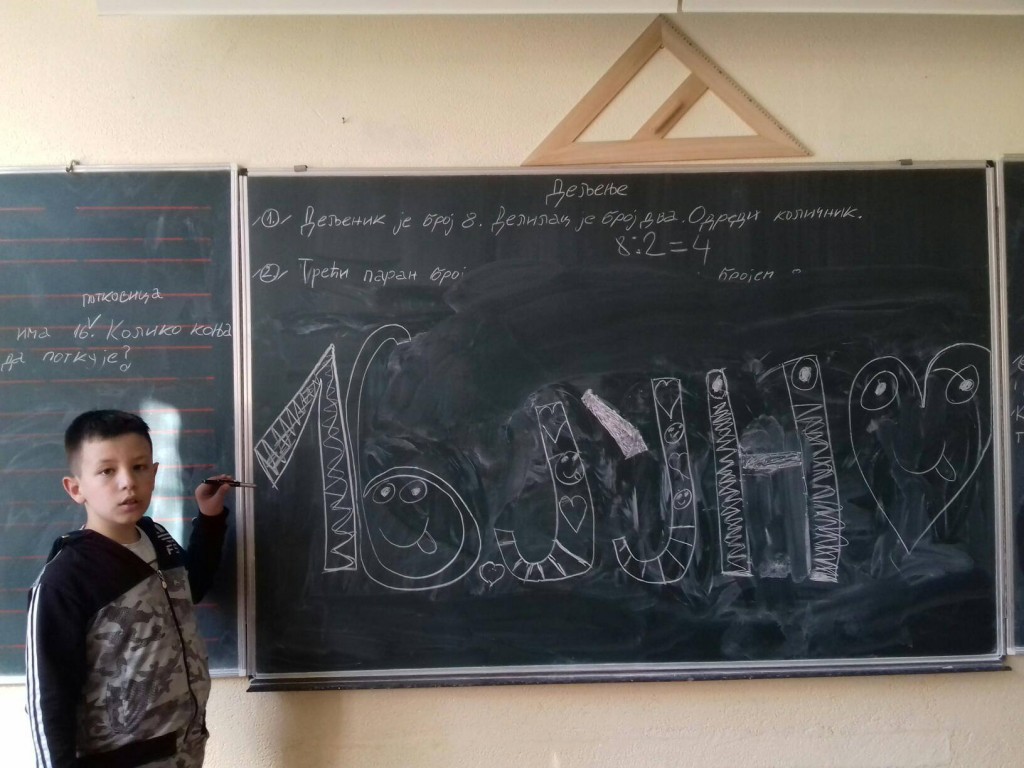 потковица
има 16. Колико коња
да поткује?
Дељење
1. Дељеник је број 8. Делилац је број два. Одреди количник.
8:2=4
2. Трећи паран број
16. ЈУН